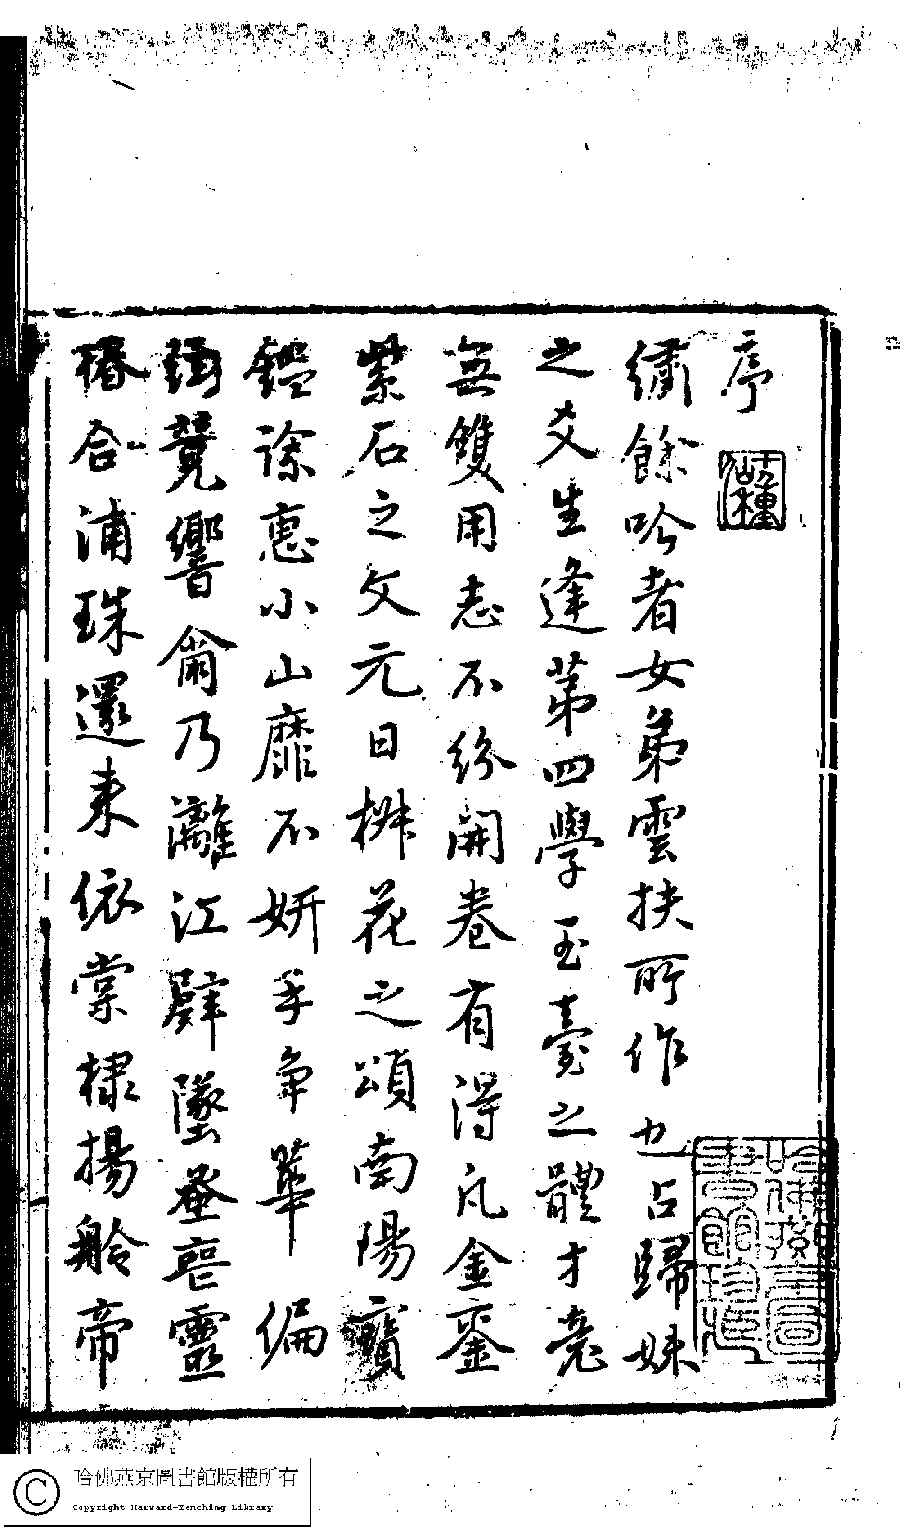 序
繡餘吟者女弟雲扶所作也占歸妹
之爻生逢第四學玉臺之體才竟
無雙用志不紛開卷有得凡金鑾
紫石之文元日椒花之頌南陽寶
鑑詠惠小山靡不妍手爭華偏
絃覓響爾乃灕江壁墜蚤喪靈
椿合浦珠還來依棠棣揚舲帝
哈佛燕京圖書館珍藏
哈佛燕京圖書館版權所有
Copyright Harvard-Yenching Library